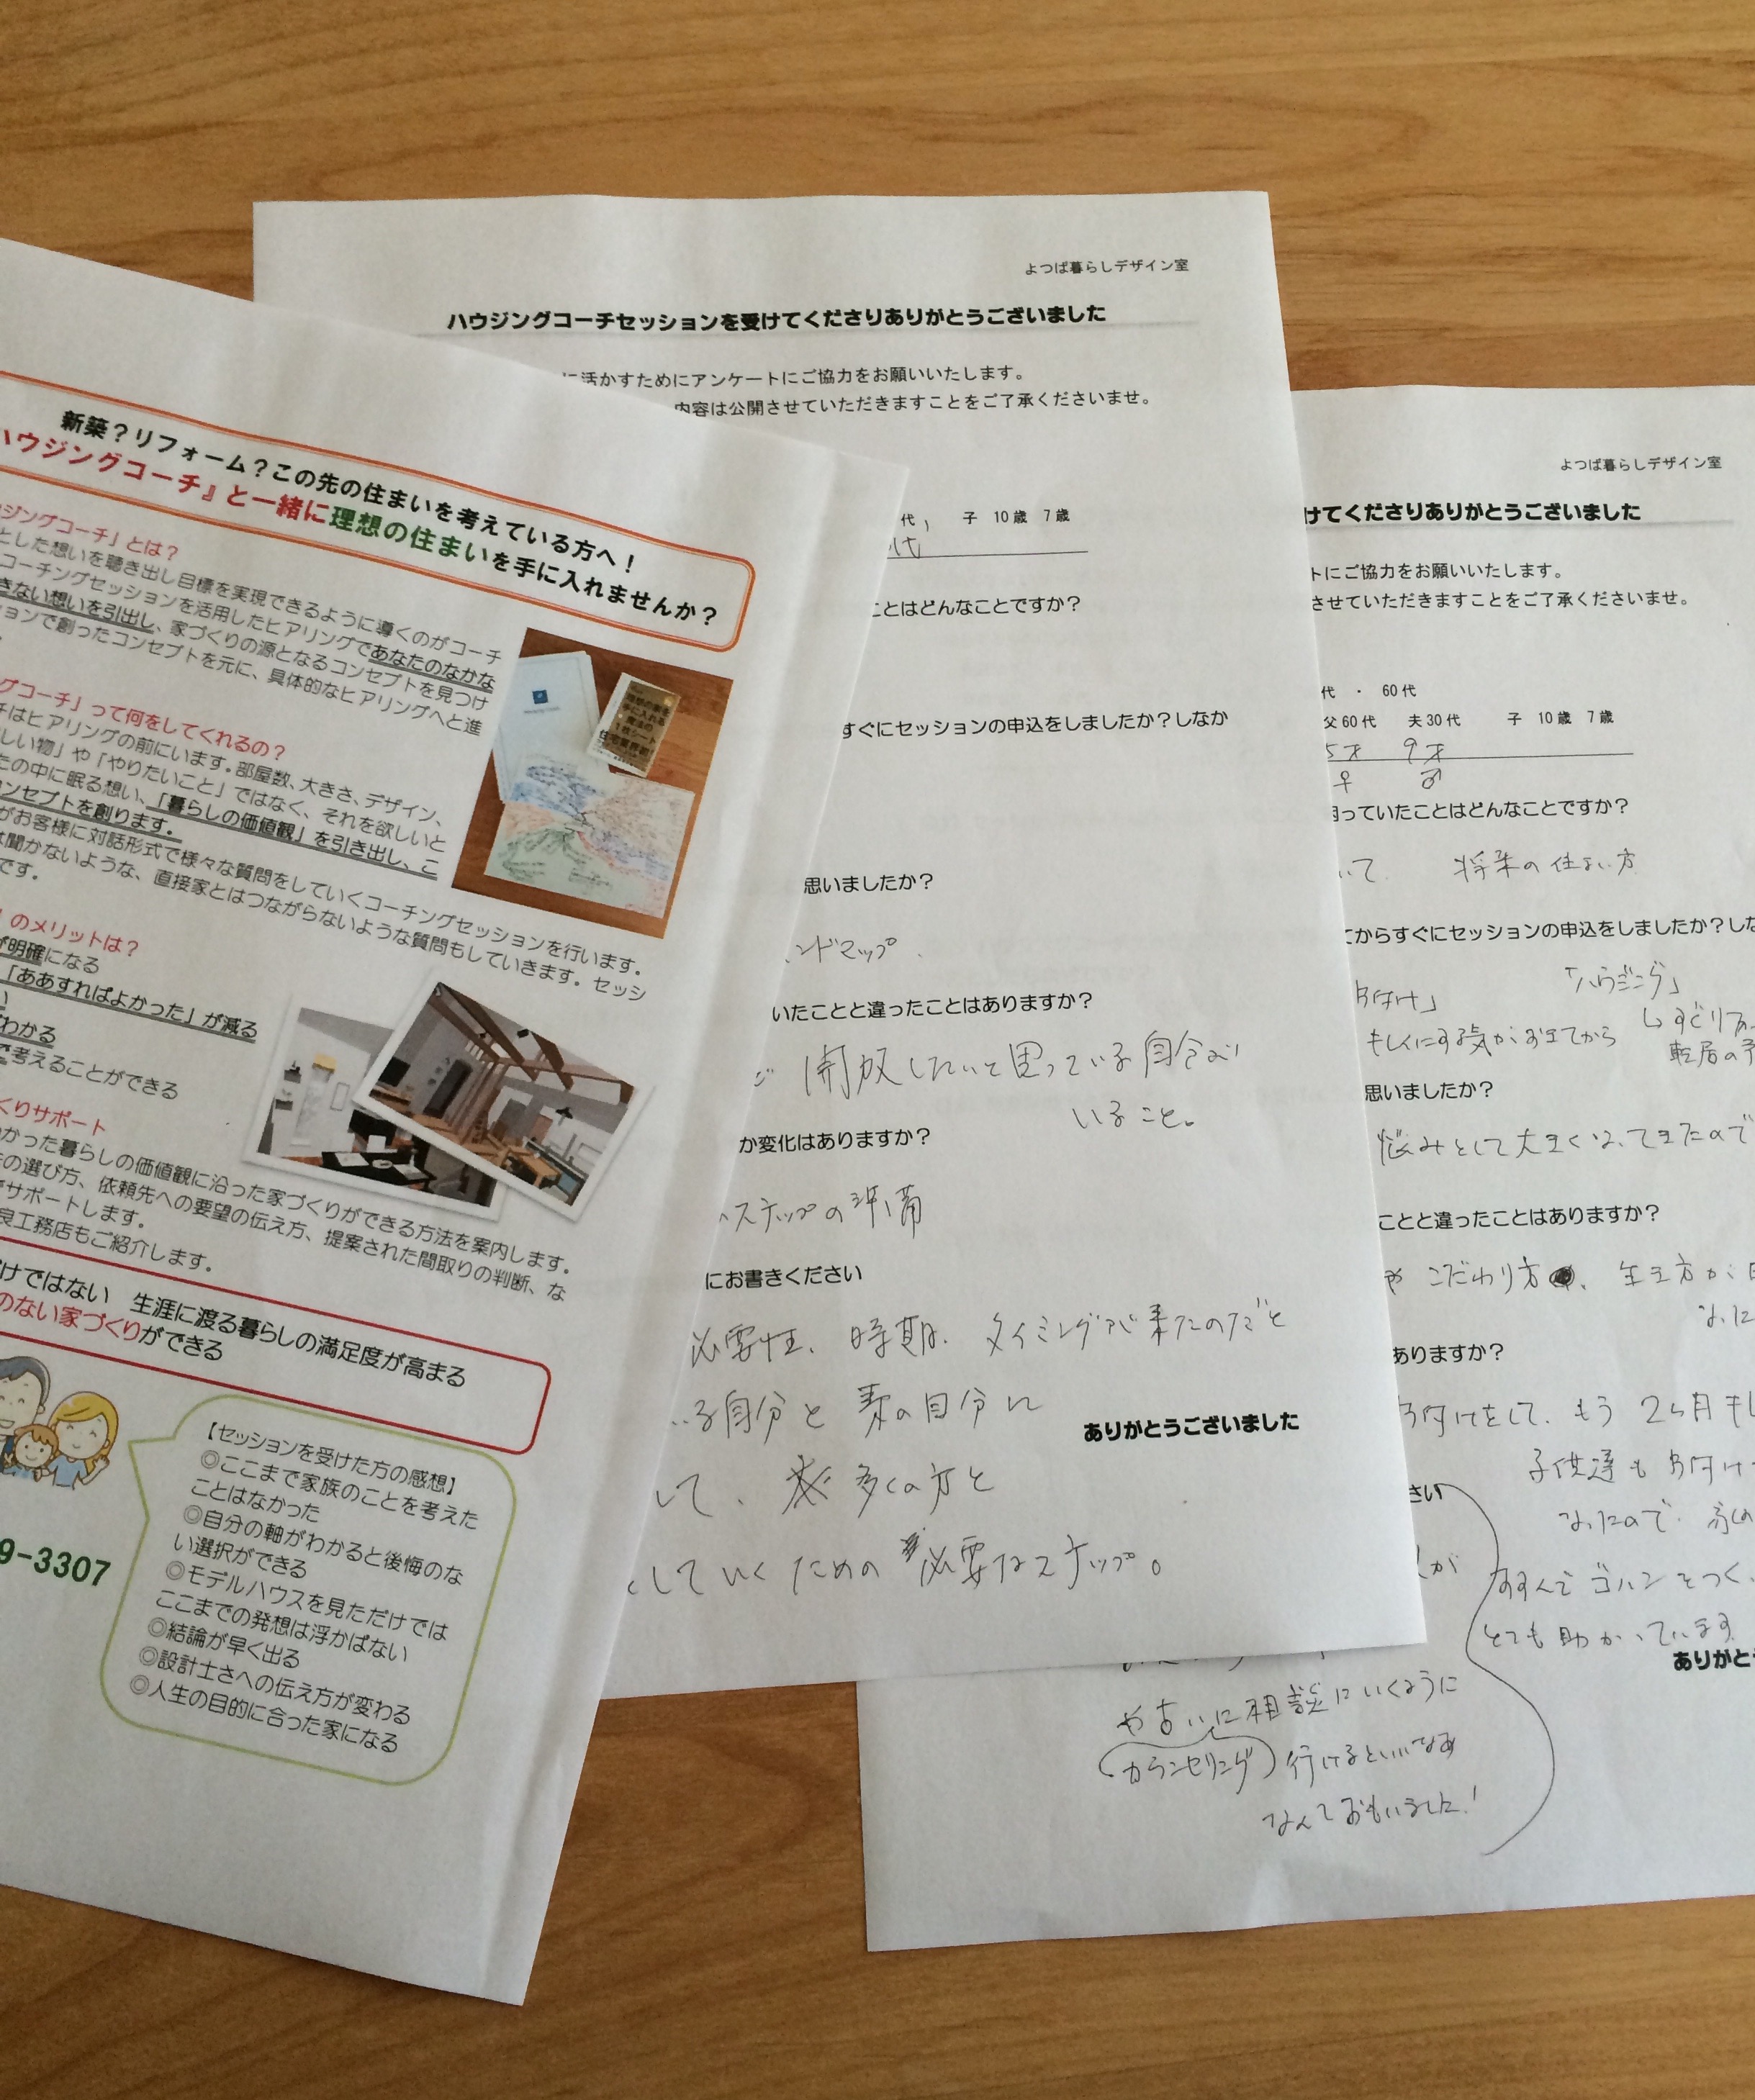 新築？リフォーム？この先の住まいを考えている方へ！
ハウジングコーチ』と一緒に理想の住まいを手に入れませんか？
ジングコーチ」とは？
とした想いを聴き出し目標を実現できるように導くのがコーチ
コーチングセッションを活用したヒアリングであなたのなかな
きない想いを引出し、家づくりの源となるコンセプトを見つけ
ションで創ったコンセプトを元に、具体的なヒアリングへと進
グコーチ」って何をしてくれるの？
チはヒアリングの前にいます。部屋数、大きさ、デザイン、
しい物」や「やりたいこと」ではなく、それを欲しいと
たの中に眠る想い、「暮らしの価値観」を引き出し、こ
コンセプトを創ります。
がお客様に対話形式で様々な質問をしていくコーチングセッションを行います。
は聞かないような、直接家とはつながらないような質問もしていきます。セッシ
です。
」のメリットは？
が明確になる
「ああすればよかった」が減る
い
わかる
で考えることができる
くりサポート
かった暮らしの価値観に沿った家づくりができる方法を案内します。
の選び方、依頼先への要望の伝え方、提案された間取りの判断、な
サポートします。
良工務店もご紹介します。
けではない　生涯に渡る暮らしの満足度が高まる
のない家づくりができる
9-3307
【セッションを受けた方の感想】
◎ここまで家族のことを考えた
ことはなかった
◎自分の軸がわかると後悔のな
い選択ができる
◎モデルハウスを見ただけでは
ここまでの発想は浮かばない
◎結論が早く出る
◎設計士さへの伝え方が変わる
◎人生の目的に合った家になる
よつば暮らしデザイン室
ハウジングコーチセッションを受けてくださりありがとうございました
に活かすためにアンケートにご協力をお願いいたします。
内容は公開させていただきますことをご了承くださいませ。
代　子　10歳　7歳
代
ことはどんなことですか？
すぐにセッションの申込をしましたか？しなか
思いましたか？
ンドマップ
いたことと違ったことはありますか？
開放したいと思っている自分が
いること。
か変化はありますか？
ステップの準備
にお書きください
必要性、時期、タイミングが来たのだと
いる自分と素の自分に
ありがとうございました
して、多くの方と
していくための必要なステップ。
よつば暮らしデザイン室
けてくださりありがとうございました
トにご協力をお願いいたします。
させていただきますことをご了承くださいませ。
代　・　60代
父60代　夫30代　子　10歳　7歳
5才　9才
♀　♂
困っていたことはどんなことですか？
いて　将来の住まい方
てからすぐにセッションの申込をしましたか？しな
片付け」　「ハウジング」
もしくにする気がおきてから
転居の予
思いましたか？
悩みとして大きくなってきたので
ことと違ったことはありますか？
やこだわり方、生き方が
なった
ありますか？
片付けをして、もう2ヶ月も
子供達も片付け
なったので、
さい
すすんでゴハンをつく
とても助かっています
ありがとう
や占いに相談にいくように
(カウンセリング)　行けるといいなあ
なんておもいました！